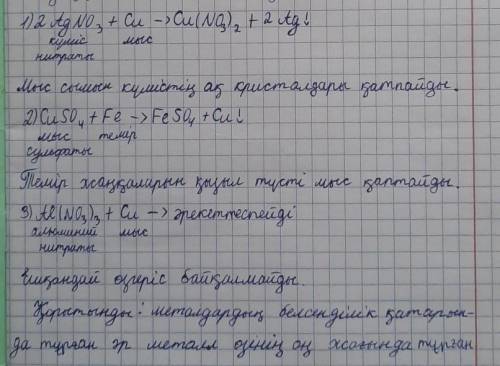 1) 2 AgNO₃ + Cu → Cu(NO₃)₂ + 2 Ag↓
күміс мыс
нитраты
Мыс сымын күмістің ақ кристалдары қаппайды.
2) CuSO₄ + Fe → FeSO₄ + Cu↓
мыс темір
сульфаты
Темір жаңқаларын қызыл түсті мыс қаптайды.
3) Al(NO₃)₃ + Cu → әрекеттеспейді
алюминий мыс
нитраты
Ешқандай өзгеріс байқалмайды.
Қорытынды: металдардың белсенділік қатарын-
да тұрған әр металл өзінің оң жағында тұрған